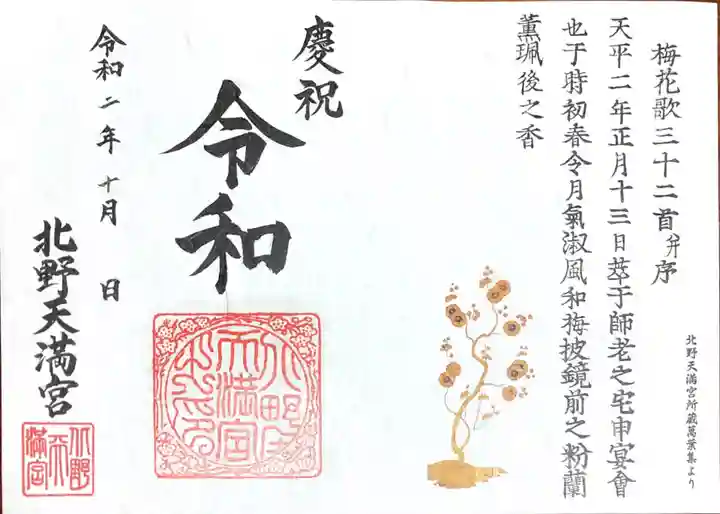 梅花歌三十二首并序
天平二年正月十三日萃于師老之宅申宴會
也于時初春令月氣淑風和梅披鏡前之粉蘭
薫珮後之香
北野天満宮所蔵萬葉集より
慶祝
令和
令和二年十月 日
北野天満宮
北野天満宮